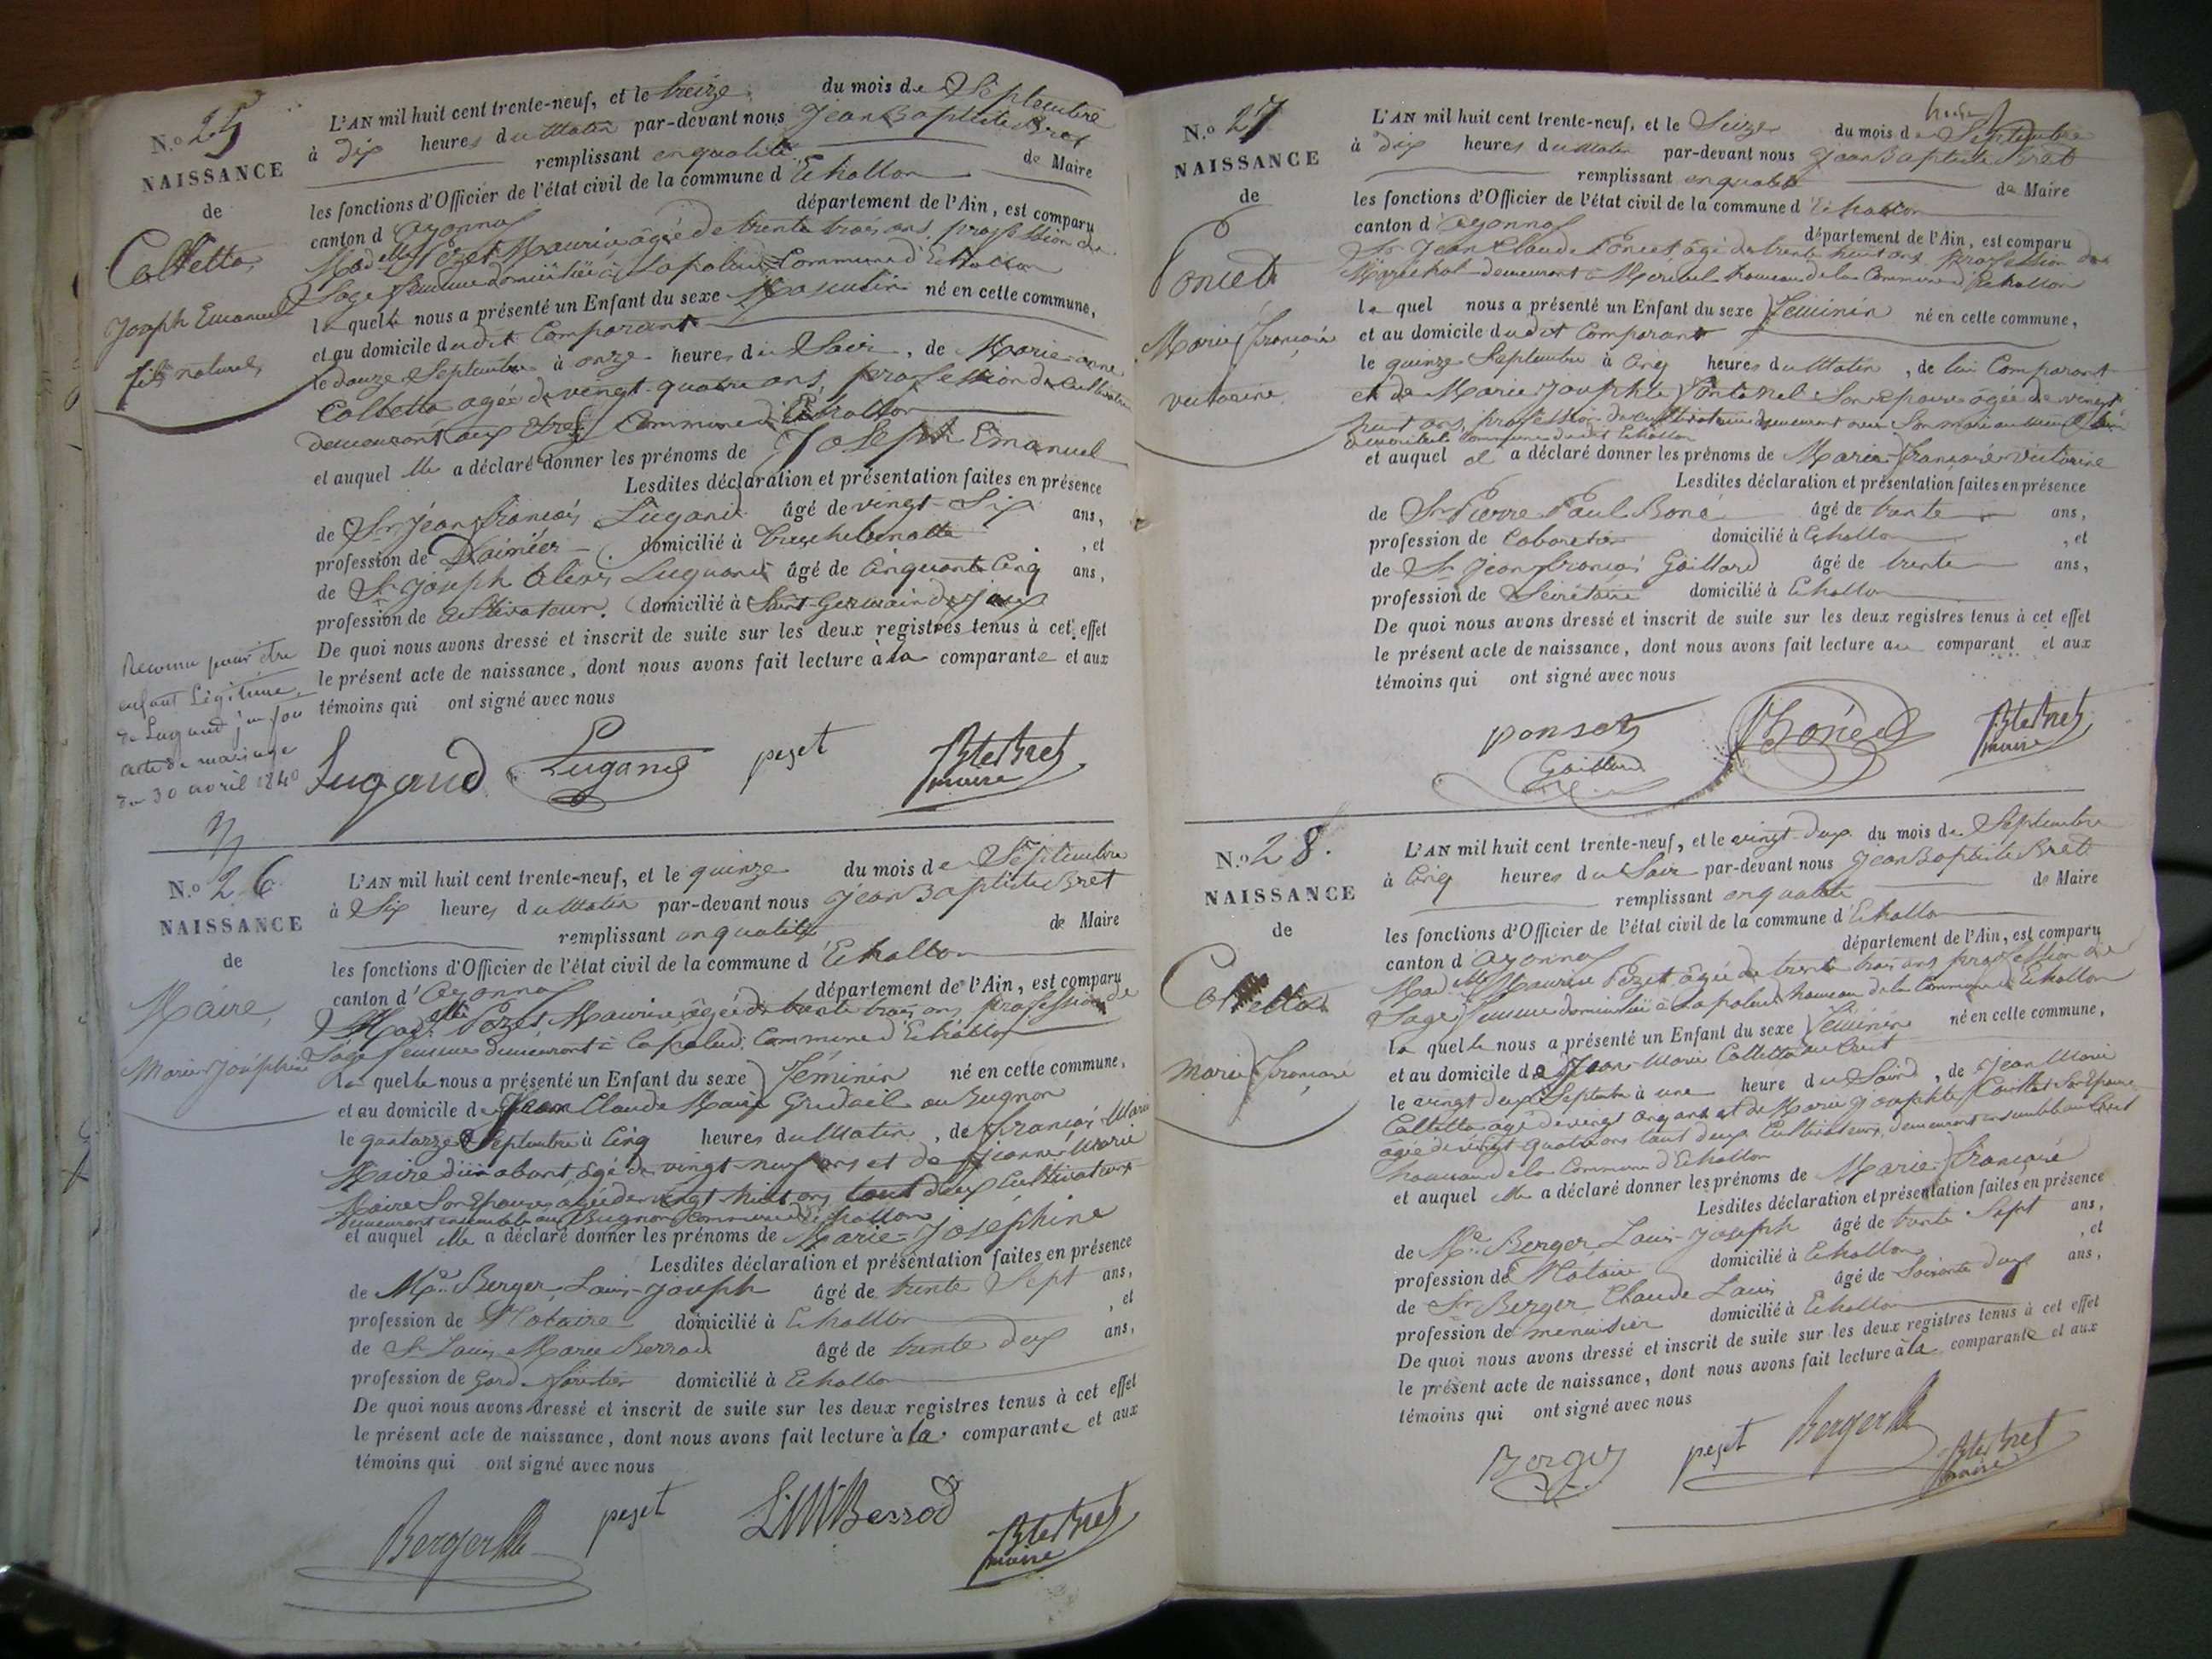 N.o 25
NAISSANCE
de
Colletta
Joseph Emanuel
fils naturel
Reconnu pour être
enfant Légitime
de Lugand j.n fois
acte de mariage
du 30 avril 1840
L'AN mil huit cent trente-neuf, et le treize du mois de Septembre
à dix heures du Matin par-devant nous Jean Baptiste Bret
remplissant en qualité de Maire
les fonctions d'Officier de l'état civil de la commune d'Echallon
canton d'Oyonnax département de l'Ain, est comparu
Mad.elle Pezet Maurise âgée de trente trois ans, profession de
Sage femme domiciliée à Lapalud Commune d'Echallon
laquelle nous a présenté un Enfant du sexe Masculin né en cette commune,
et au domicile dudit Comparant
le douze Septembre à onze heures du Soir, de Marie anne
Colletta agée de vingt-quatre ans, profession de Cultivatrice
demeurant aux Commune d'Echallon
et auquel elle a déclaré donner les prénoms de Joseph Emanuel
Lesdites déclaration et présentation faites en présence
de Sr Jean françois Lugand âgé de vingt-Six ans,
profession de domicilié à , et
de Sr Joseph Alexis Lugand âgé de Cinquante Cinq ans,
profession de Cultivateur domicilié à Saint-Germain de Joux
De quoi nous avons dressé et inscrit de suite sur les deux registres tenus à cet effet
le présent acte de naissance, dont nous avons fait lecture à la comparante et aux
témoins qui ont signé avec nous
Lugand Lugand pezet Bte Bret
maire
N.o 26
NAISSANCE
de
Maire
Marie Joséphine
L'AN mil huit cent trente-neuf, et le quinze du mois de Septembre
à Six heures du Matin par-devant nous Jean Baptiste Bret
remplissant en qualité de Maire
les fonctions d'Officier de l'état civil de la commune d'Echallon
canton d'Oyonnax département de l'Ain, est comparu
Mad.elle Pezet Maurise âgée de trente trois ans profession de
Sage femme demeurant à Lapalud Commune d'Echallon
laquelle nous a présenté un Enfant du sexe féminin né en cette commune,
et au domicile de Jean Claude Maire au Bugnon
le quatorze Septembre à Cinq heures du Matin, de François Marie
Maire âgé de vingt-neuf ans et de Jeanne Marie
Maire Son Epouse agée de vingt huit ans tout deux Cultivateurs
demeurant ensemble au Bugnon Commune d'Echallon
et auquel elle a déclaré donner les prénoms de Marie-Joséphine
Lesdites déclaration et présentation faites en présence
de Me Berger Louis-Joseph âgé de trente Sept ans,
profession de Notaire domicilié à Echallon , et
de Sr Louis Marie Berrod âgé de trente deux ans,
profession de Gard forestier domicilié à Echallon
De quoi nous avons dressé et inscrit de suite sur les deux registres tenus à cet effet
le présent acte de naissance, dont nous avons fait lecture à la comparante et aux
témoins qui ont signé avec nous
Berger pezet L M Berrod Bte Bret
maire
N.o 27
NAISSANCE
de
Poncet
Marie françoise
victorine
L'AN mil huit cent trente-neuf, et le Seize du mois de Septembre
à dix heures du Matin par-devant nous Jean Baptiste Bret
remplissant en qualité de Maire
les fonctions d'Officier de l'état civil de la commune d'Echallon
canton d'Oyonnax département de l'Ain, est comparu
Sr Jean Claude Poncet âgé de trente huit ans profession de
Maréchal demeurant à hameau de la Commune d'Echallon
lequel nous a présenté un Enfant du sexe féminin né en cette commune,
et au domicile dudit Comparant
le quinze Septembre à Cinq heures du Matin, de lui Comparant
et de Marie Josephte Son épouse âgée de vingt
huit ans, profession de cultivatrice demeurant avec Son mari
commune dudit Echallon
et auquel il a déclaré donner les prénoms de Marie-françoise victorine
Lesdites déclaration et présentation faites en présence
de Sr Pierre Paul Boné âgé de trente ans,
profession de Cabaretier domicilié à Echallon , et
de Sr Jean françois Gaillard âgé de trente ans,
profession de Secrétaire domicilié à Echallon
De quoi nous avons dressé et inscrit de suite sur les deux registres tenus à cet effet
le présent acte de naissance, dont nous avons fait lecture au comparant et aux
témoins qui ont signé avec nous
ponset Gaillard Bte Bret
maire
N.o 28.
NAISSANCE
de
Colletta
Marie françoise
L'AN mil huit cent trente-neuf, et le vingt-deux du mois de Septembre
à Cinq heures du Soir par-devant nous Jean Baptiste Bret
remplissant en qualité de Maire
les fonctions d'Officier de l'état civil de la commune d'Echallon
canton d'Oyonnax département de l'Ain, est comparu
Mad.elle Maurise Pezet âgée de trente trois ans profession de
Sage femme domiciliée à Lapalud hameau de la Commune d'Echallon
laquelle nous a présenté un Enfant du sexe féminin né en cette commune,
et au domicile de Jean-Marie Colletta au Cret
le vingt deux Septembre à une heure du Soir, de Jean Marie
Colletta âgé de vingt cinq ans et de Marie Josephte Son Epouse
agée de vingt quatre ans tout deux Cultivateurs, demeurant ensemble au Cret
hameau de la Commune d'Echallon
et auquel elle a déclaré donner les prénoms de Marie françoise
Lesdites déclaration et présentation faites en présence
de Me Berger Louis-Joseph âgé de trente Sept ans,
profession de Notaire domicilié à Echallon , et
de Sr Berger Claude Louis âgé de Soixante deux ans,
profession de menuisier domicilié à Echallon
De quoi nous avons dressé et inscrit de suite sur les deux registres tenus à cet effet
le présent acte de naissance, dont nous avons fait lecture à la comparante et aux
témoins qui ont signé avec nous
Berger pezet Berger Bte Bret
maire